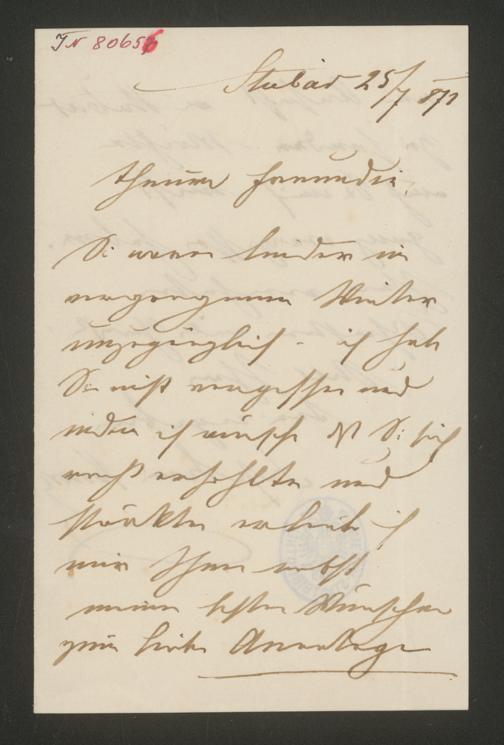 IN 80656
Stubai 25/7 871
Theure Freundin,
Sie waren leider im
vergangenen Winter
unzugänglich – ich habe
Sie nicht vergessen und
indem ich wünsche dß Sie sich
recht erhohlten und
stärkten erlaube ich
mir Ihnen nebst
meinen besten Wünschen
zum lieben Annentage